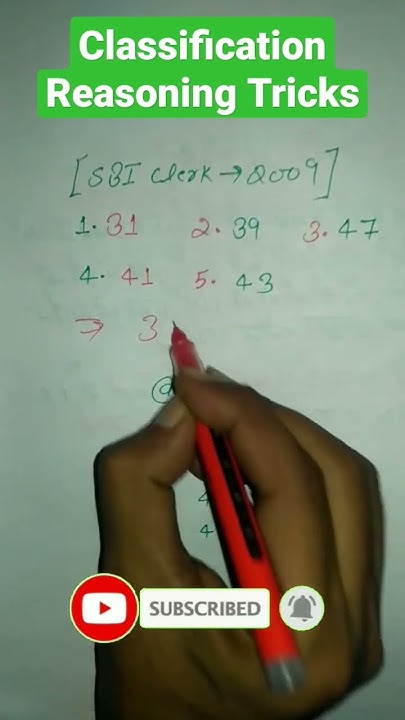 Classification
Reasoning Tricks
[SBI Clerk → 2009]
1. 31 2. 39 3. 47
4. 41 5. 43
⇒ 3
@
4
4
SUBSCRIBED